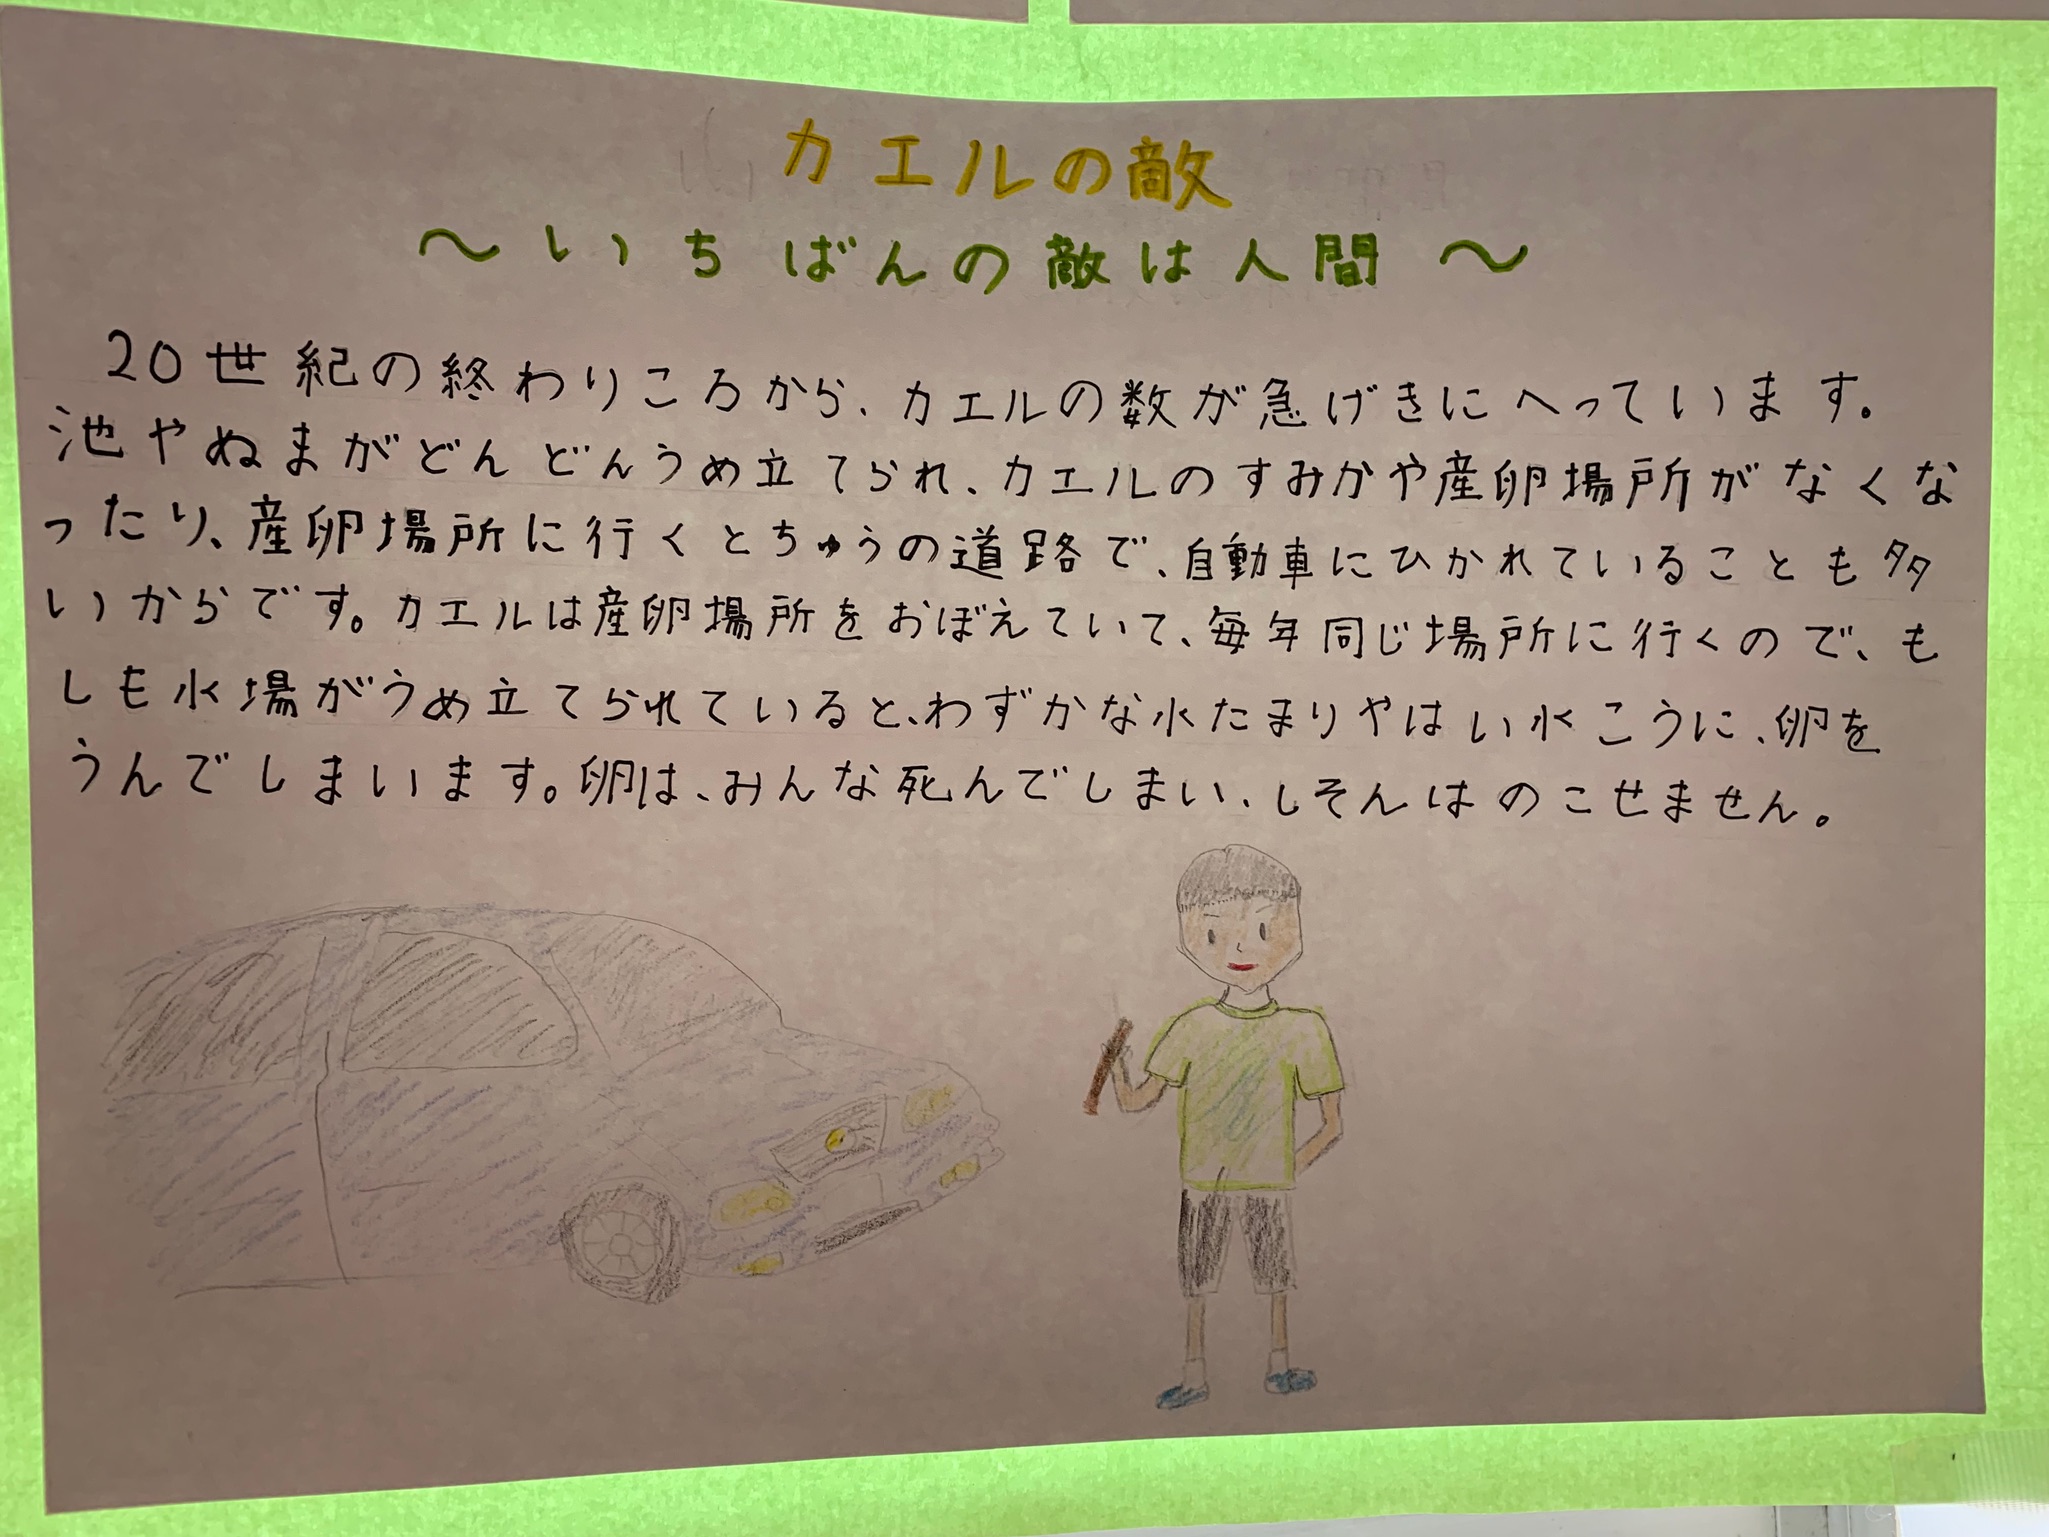 カエルの敵
〜いちばんの敵は人間〜
20世紀の終わりころから、カエルの数が急げきにへっています。
池やぬまがどんどんうめ立てられ、カエルのすみかや産卵場所がなくな
ったり、産卵場所に行くとちゅうの道路で、自動車にひかれていることも多
いからです。カエルは産卵場所をおぼえていて、毎年同じ場所に行くので、も
しも水場がうめ立てられていると、わずかな水たまりやはい水こうに、卵を
うんでしまいます。卵は、みんな死んでしまい、しそんはのこせません。